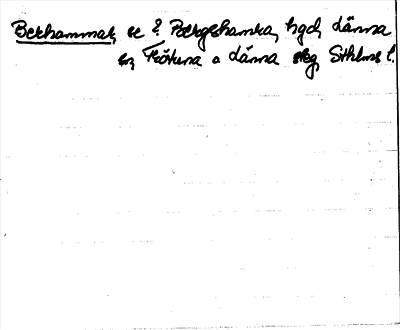 Bekhammar, se ? Bergshamra, hgd, dänna
sn, Frötuna o dänna skg, Sthlms l.